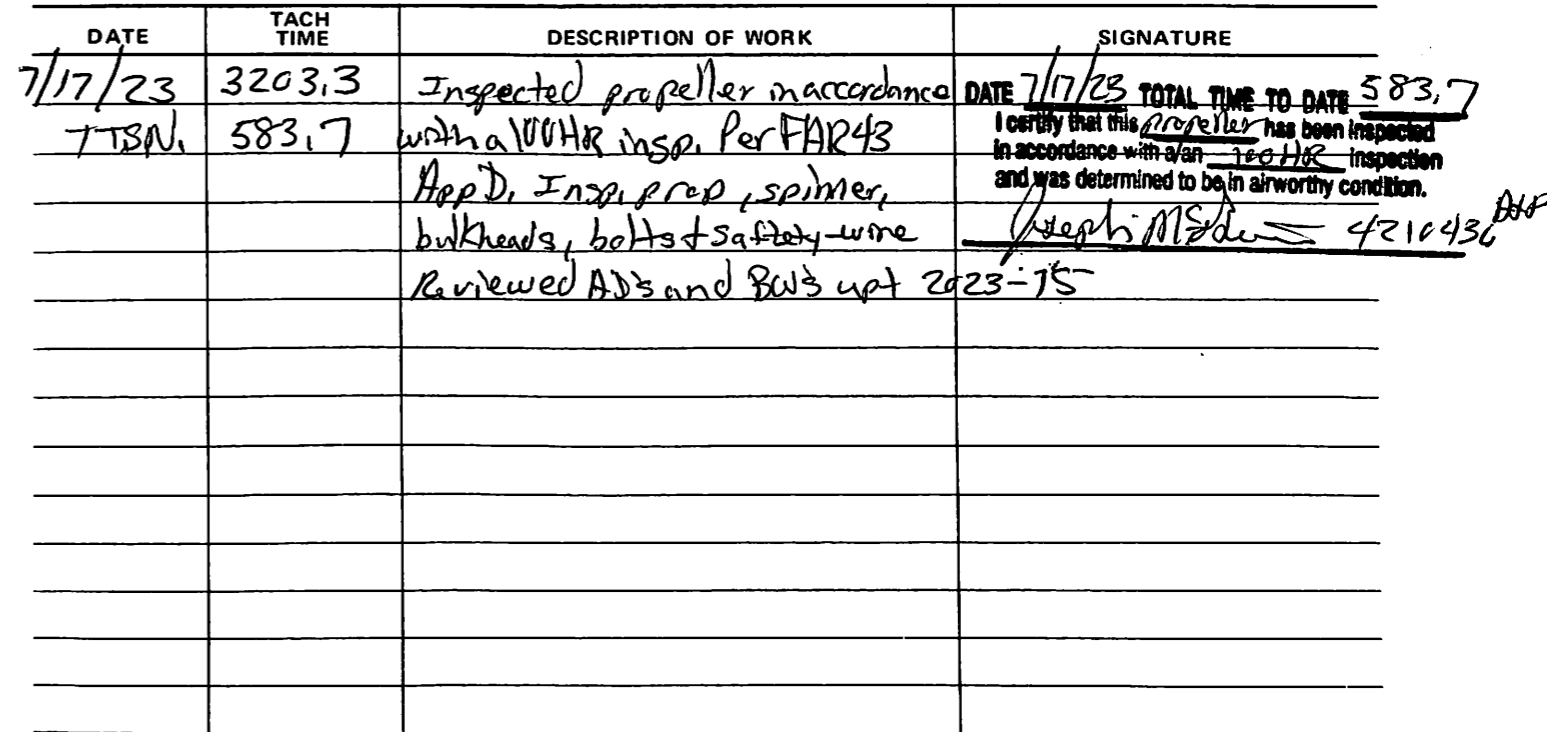 DATE TACH TIME DESCRIPTION OF WORK SIGNATURE
7/17/23 3203.3 Inspected propeller in accordance DATE 7/17/23 TOTAL TIME TO DATE 583.7
TTSN. 583.7 with a 100HR insp. Per FAR43 I certify that this propeller has been inspected
in accordance with a/an 100 HR inspection
App D. Insp. prop, spinner, and was determined to be in airworthy condition.
bulkheads, bolts + saftety-wire Joseph 4210436 A&P
Reviewed AD's and BW's upt 2023-15